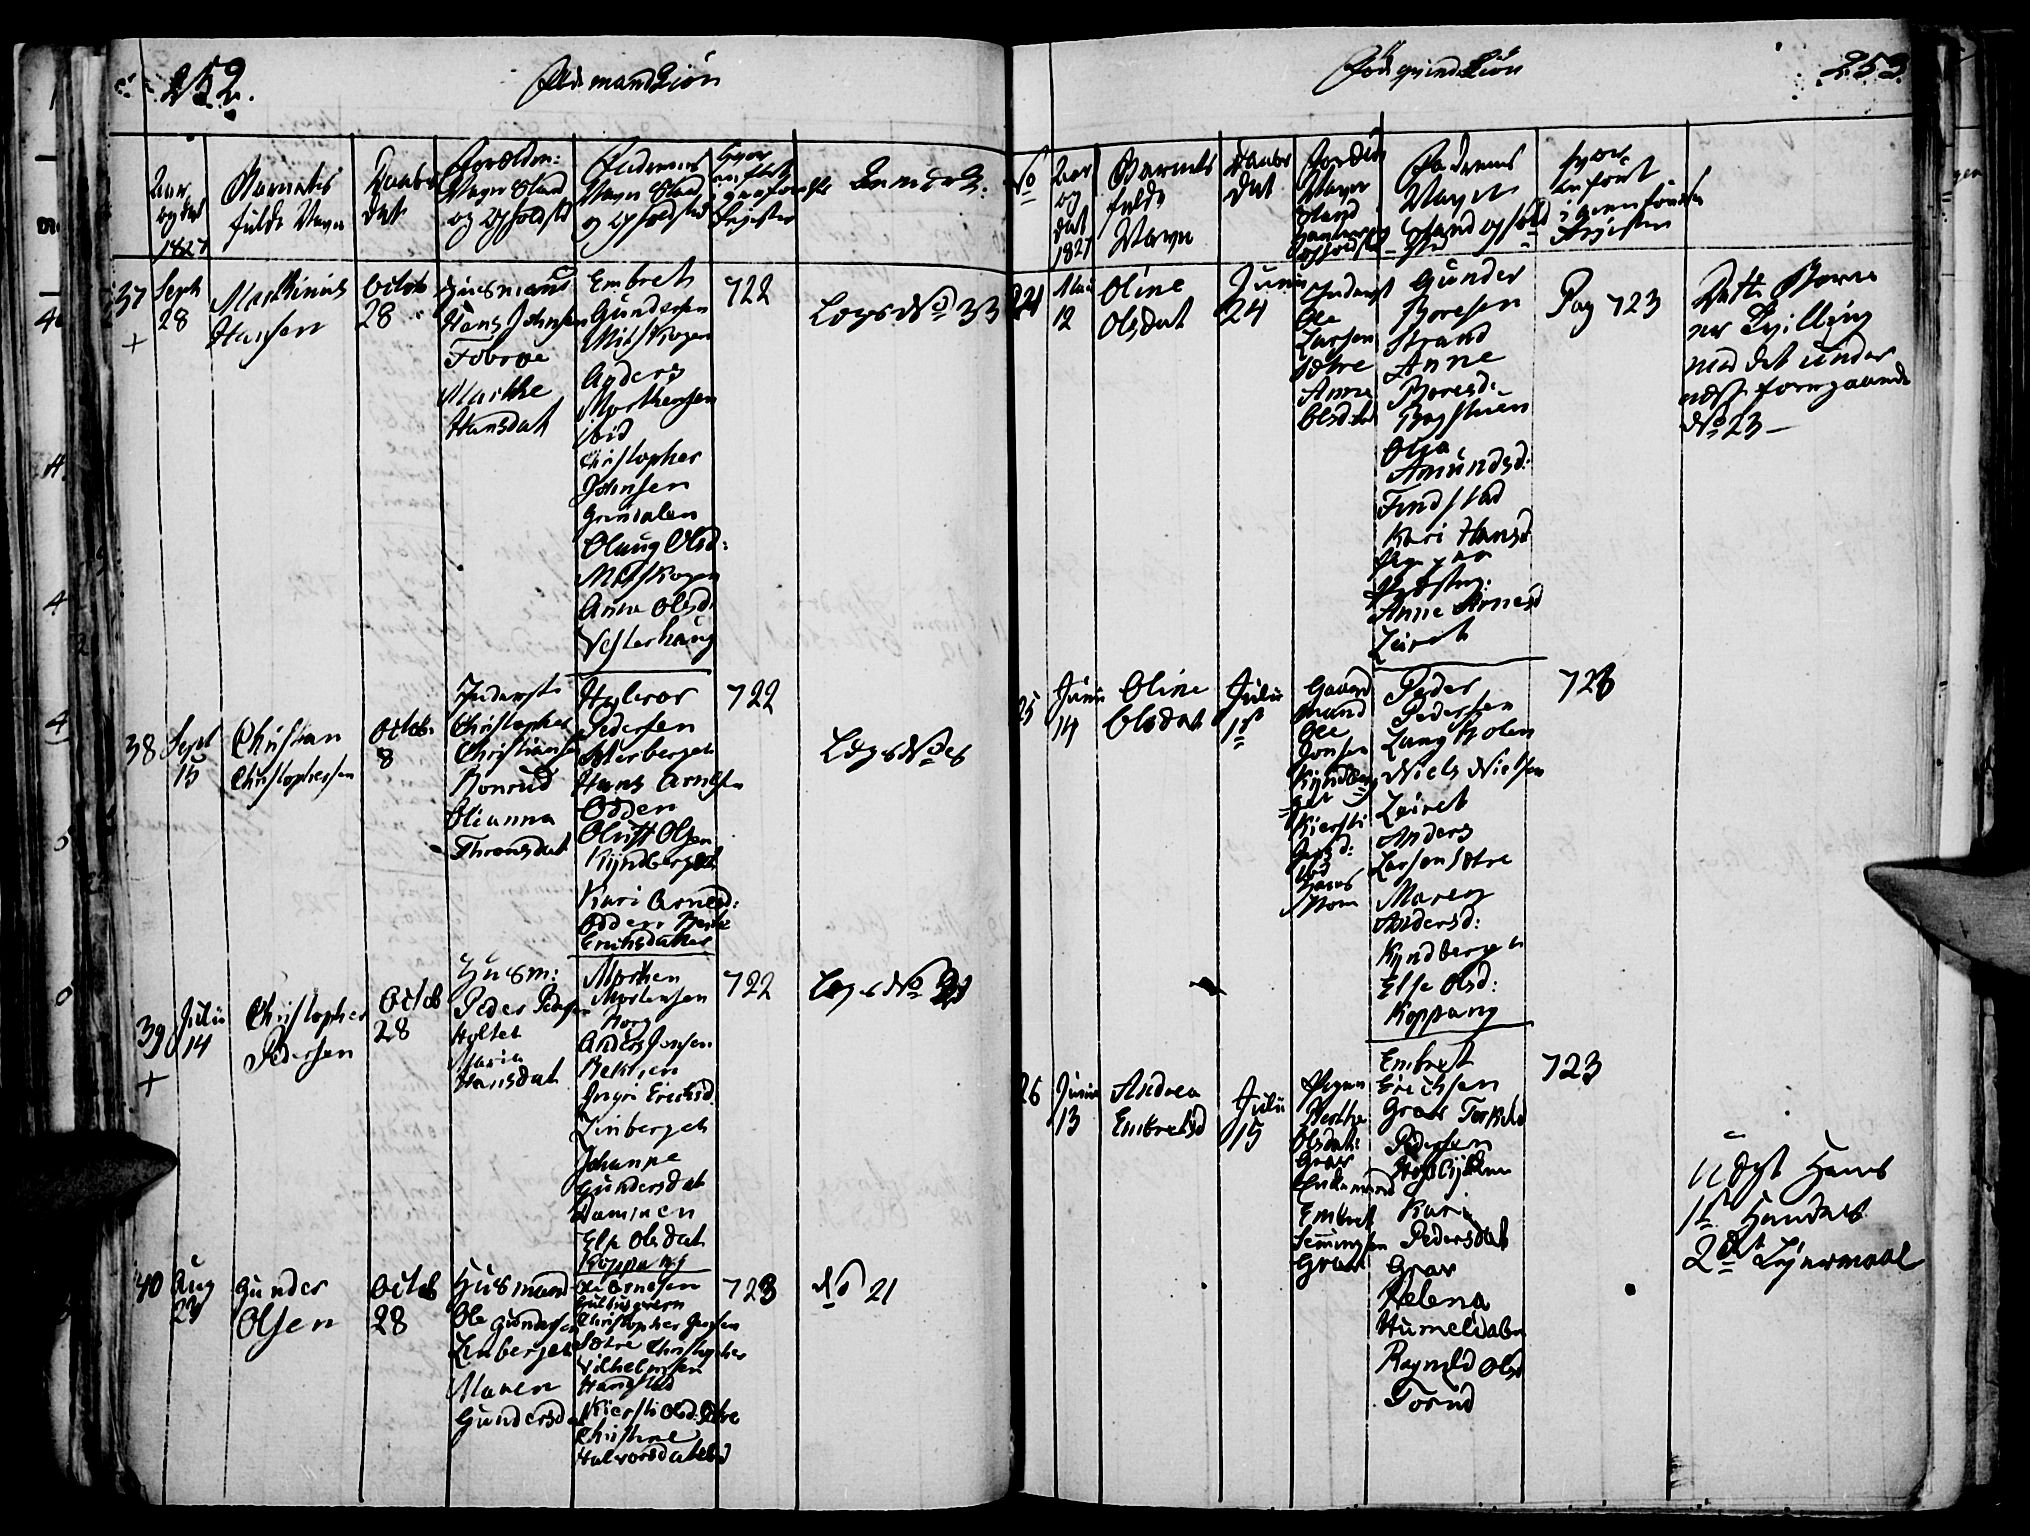 252.
Födt mandkiön
Aar og dat 1827
Barnets fulde Navn
Daabs dat
Forældre: Navn Stand og Opholdsted
Fadernes Navn Stand og Opholdsted
hvor anført i Register
Anmærk.
37
+
Sept 28
Marthinus
Hansen
Octob 28
Huusmand
Hans Johnsen
Marthe
Hansdat
Embret
Gundersen
Mitskogen
Anders
Morthensen
ibid
Christopher
Johnsen
Grundalen
Olaug Olsd:
Mitskogen
Anne Olsd.
Vesterhaug
722
Lægs No 33
38
Sept 15
Christian
Christophersen
Octob. 8
Inderst
Christopher
Christiansen
Bonrud
Olianna
Thronsdat
Halvor
Pedersen
Østerberget
Hans Arnesen
Odden
Oluf Olsen
Kyndberget
Kari Arnesd:
Odden
Erichsdatter
722
Lægs No
39
+
Julii 14
Christopher
Pedersen
Octob 28
Huusm:
Peder Pedersen
Hyttet
Maria
Hansdat
Morthen
Mortensen
Borg
Anders Jonsen
Bekken
Ingri Erichsd.
Linberget
Johanne
Gundersdat
Dammen
Else Olsdat
Koppang
722
Lægs No
40
Aug 23
Gunder
Olsen
Octob 28
Huusmand
Ole Gundersen
Linberget
Maren
Gundersdat
Ole Arnesen
Christopher Jensen
Sætre Christopher
Vilhelmsen
Haugstad
Kiersti Olsd. Sætre
Christine
Halvorsdat ibid
723
No 21
Födt qvindekiön
253.
No
Aar og dat 1827
Barnets fulde Navn
Daabs dat
Fadernes Navn Stand og Opholdsted
hvor anført i Jevnførelses Register
24
Mai 12
Oline
Olsdat
Junii 24
Inderst
Ole
Larsen
Sætre
Anne
Olsdat
Gunder
Boresen
Strand
Anne
Boresd:
Bogstuen
Olea
Amundsd:
Findstad
Kari Hansd
Anne Arnesd
Leiret
Pag 723
Dette Barn
er Tvilling
med det under
næst foregaaende
No 23 -
25
Junii 14
Oline
Olsdat
Julii 1st
Gaard
mand
Ole
Jonsen
Kyndber
get
Kiersti
Peder
Pedersen
Langholen
Niels Nielsen
Leiret
Anders
Larsen Sætre
Maren
Andersd:
Kyndberget
Else Olsd:
Koppang
723
26
Junii 13
Andrea
Embretsd
Julii 15
Pigen
Berthe
Olsdat:
Grav
Enkemand
Embret
Semmingsen
Grav
Embret
Erichsen
Grav Torkild
Pedersen
Kari
Pedersdat
Grav
Helena
Humeldalen
Ragnild Olsd
Torud
723
Udgt Hans
1st Hendes
2det Leiermaal